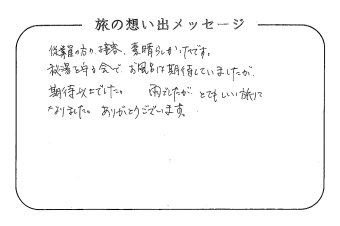 旅の想い出メッセージ
従業員の方の接客、素晴らしかったです。
秘湯を守る会で、お風呂は期待していましたが、
期待以上でした。 雨でしたが、とてもいい旅に
なりました。ありがとうございます。